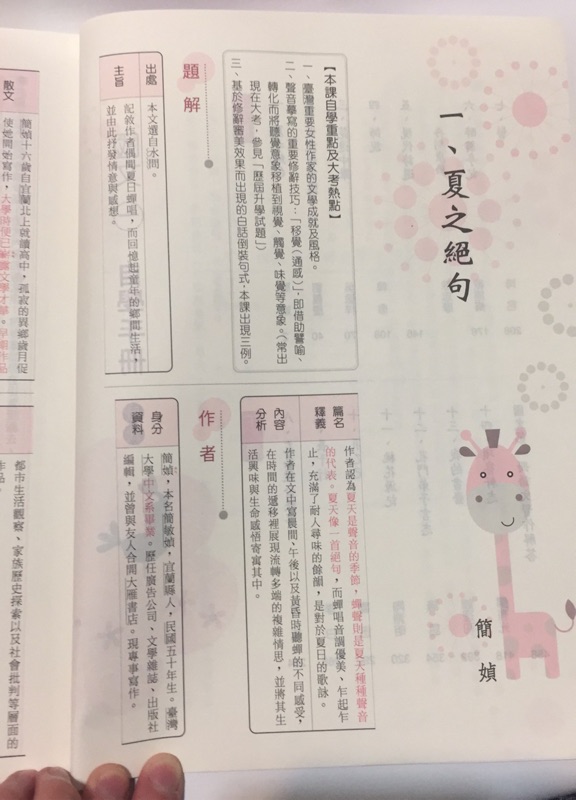 一、夏之絕句
簡媜
【本課自學重點及大考熱點】
一、臺灣重要女性作家的文學成就及風格。
二、聲音摹寫的重要修辭技巧：「移覺（通感）」，即借助譬喻、
轉化而將聽覺意象移植到視覺、觸覺、味覺等意象。（常出
現在大考，參見「歷屆升學試題」）
三、基於修辭審美效果而出現的白話倒裝句式，本課出現三例。
題解
出處
本文選自水問。
主旨
記敘作者偶聞夏日蟬唱，而回憶起童年的鄉間生活，
並由此抒發情意與感想。
篇名
釋義
作者認為夏天是聲音的季節，蟬聲則是夏天種種聲音
的代表。夏天像一首絕句，而蟬唱音調優美、乍起乍
止，充滿了耐人尋味的餘韻，是對於夏日的歌詠。
內容
分析
作者在文中寫晨間、午後以及黃昏時聽蟬的不同感受，
在時間的遞移裡展現流轉多端的複雜情思，並將其生
活興味與生命感悟寄寓其中。
作者
身分
資料
簡媜，本名簡敏媜，宜蘭縣人，民國五十年生。臺灣
大學中文系畢業。歷任廣告公司、文學雜誌、出版社
編輯，並曾與友人合開大雁書店。現專事寫作。
散文
簡媜十六歲自宜蘭北上就讀高中，孤寂的異鄉歲月促
使她開始寫作，大學時便已嶄露文學才華。早期作品
都市生活觀察、家族歷史探索以及社會批判等層面的
作品。